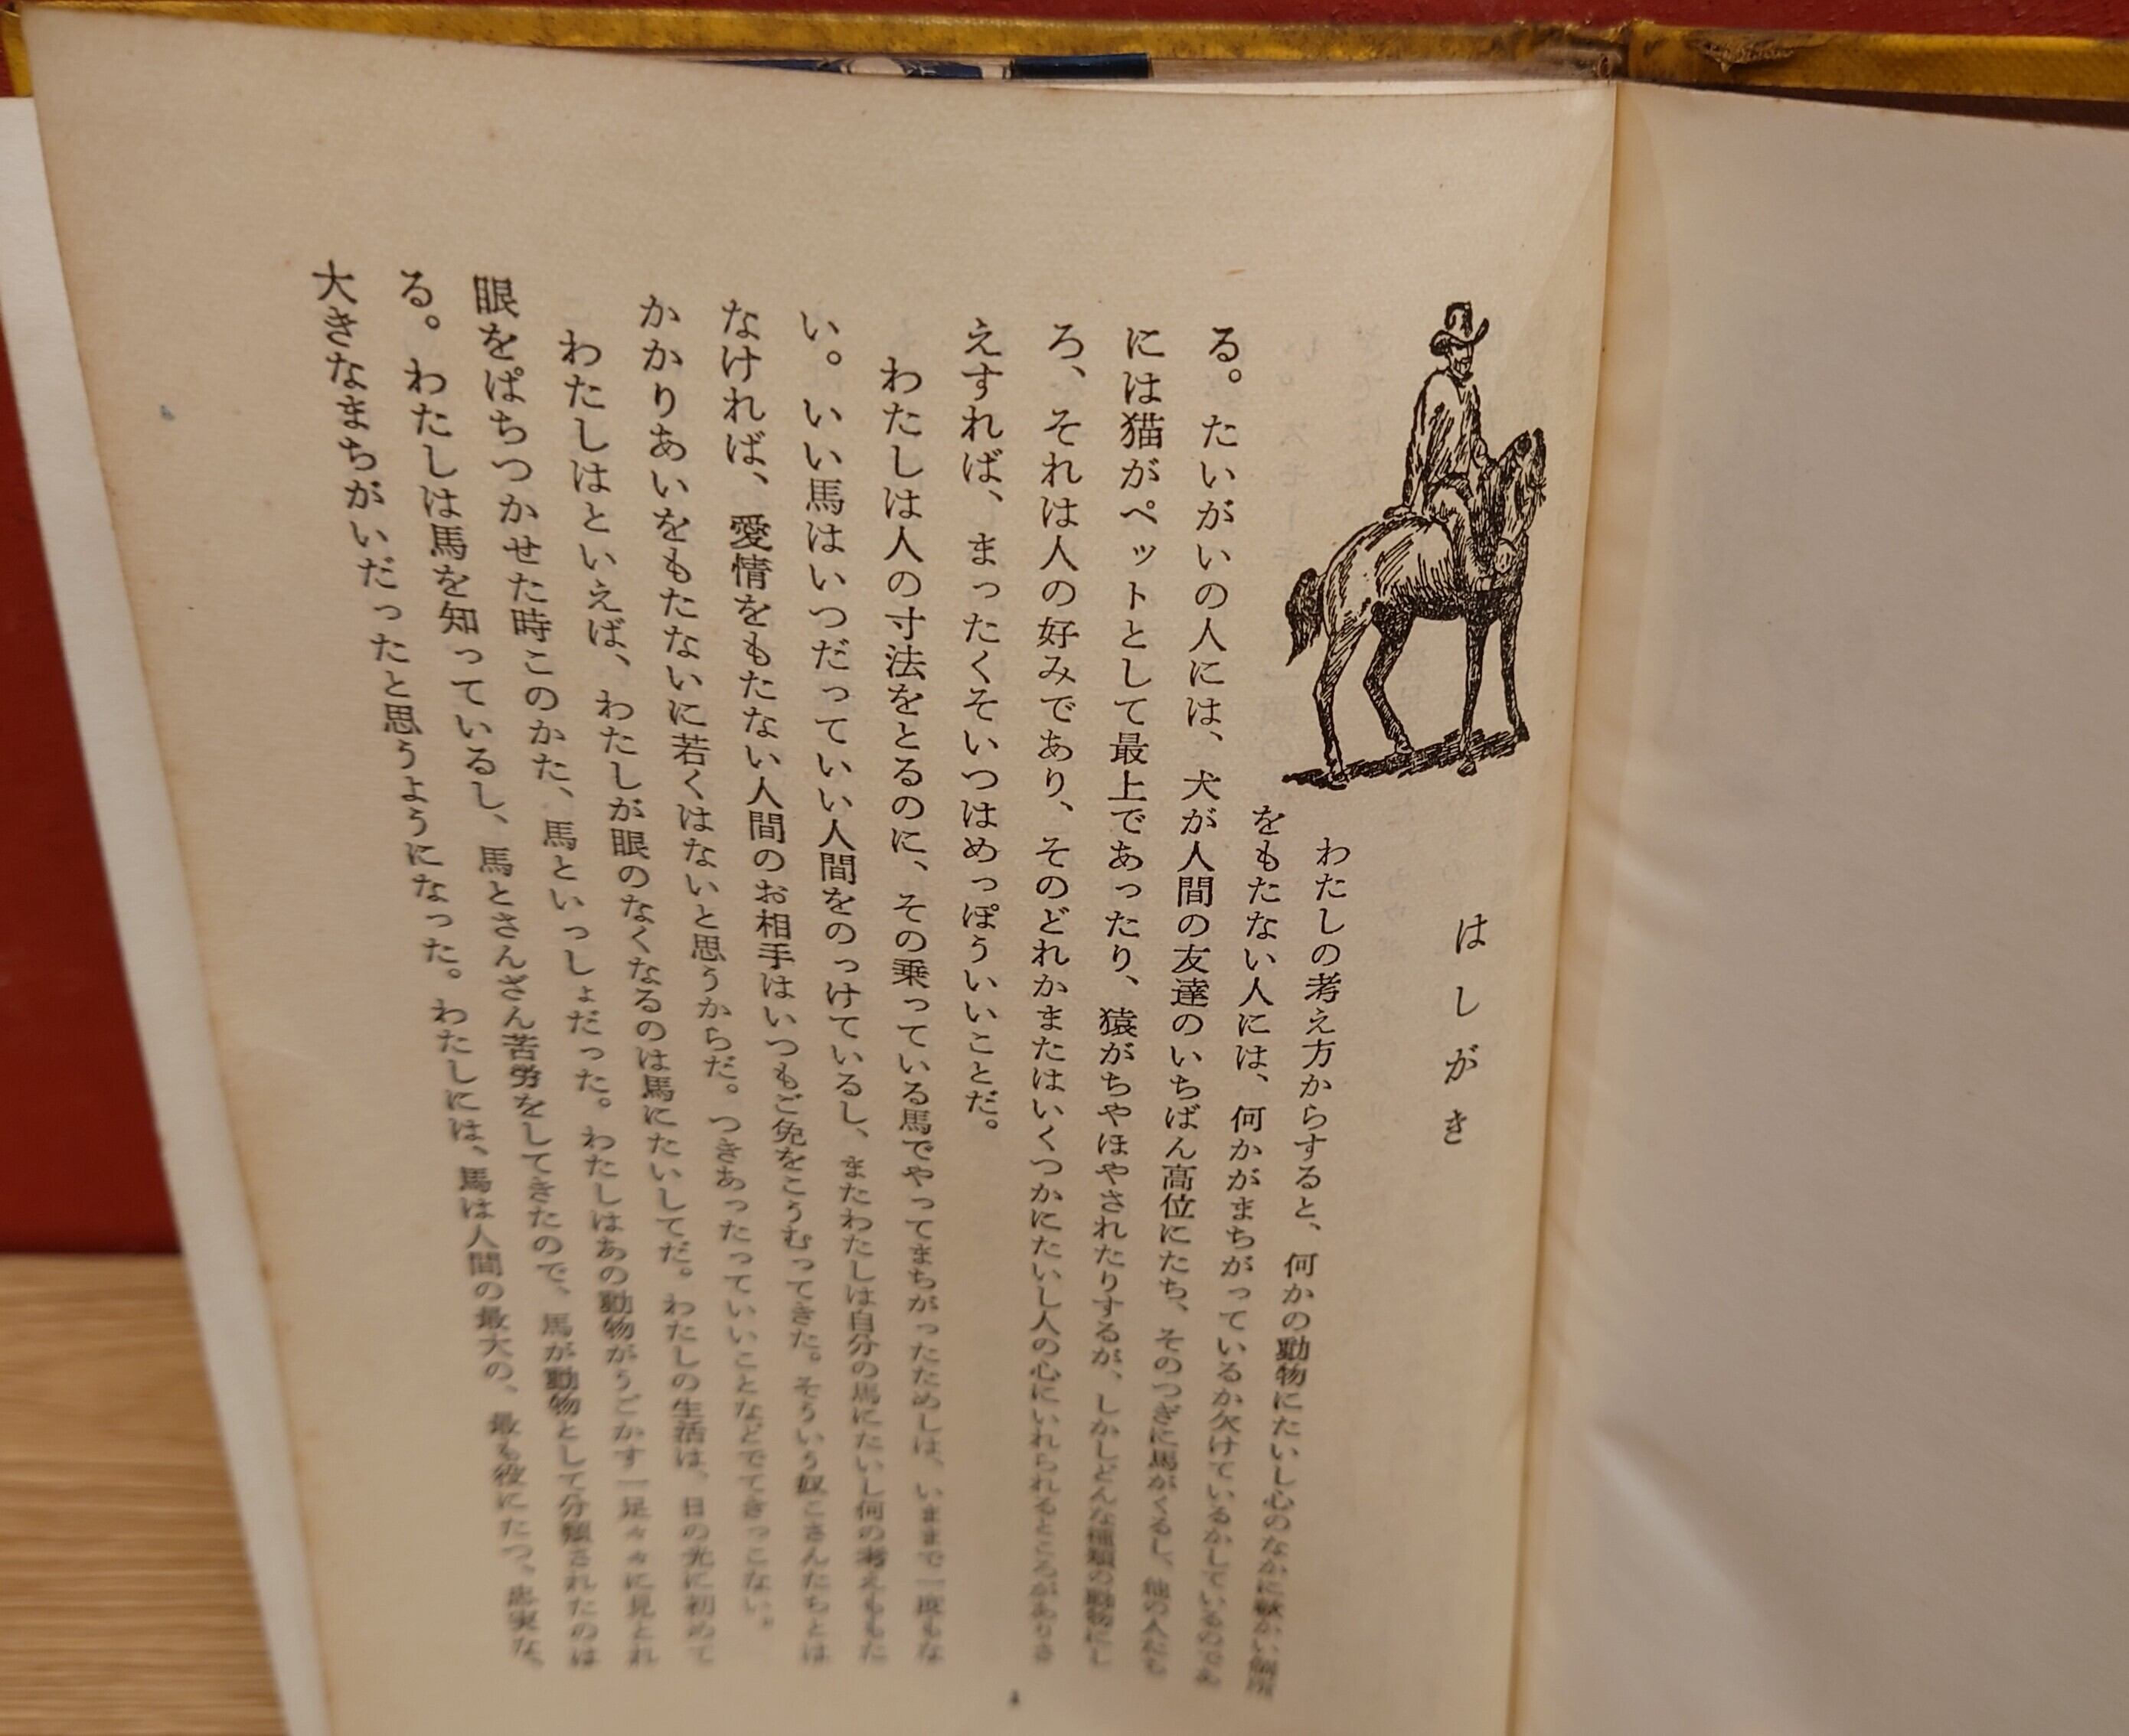 はしがき
わたしの考え方からすると、何かの動物にたいし心のなかに歓かい個所
をもたない人には、何かがまちがっているか欠けているかしているのであ
る。たいがいの人には、犬が人間の友達のいちばん高位にたち、そのつぎに馬がくるし、他の人たち
には猫がペットとして最上であったり、猿がちやほやされたりするが、しかしどんな種類の動物にし
ろ、それは人の好みであり、そのどれかまたはいくつかにたいし人の心にいれられるところがありさ
えすれば、まったくそいつはめっぽういいことだ。
わたしは人の寸法をとるのに、その乗っている馬でやってまちがったためしは、いままで一度もな
い。いい馬はいつだっていい人間をのっけているし、またわたしは自分の馬にたいし何の考えももた
なければ、愛情をもたない人間のお相手はいつもご免をこうむってきた。そういう奴こさんたちとは
かかりあいをもたないに若くはないと思うからだ。つきあったっていいことなどでてきっこない。
わたしはといえば、わたしが眼のなくなるのは馬にたいしてだ。わたしの生活は、日の光に初めて
眼をぱちつかせた時このかた、馬といっしょだった。わたしはあの動物がうごかす一足々々に見とれ
る。わたしは馬を知っているし、馬とさんざん苦労をしてきたので、馬が動物として分類されたのは
大きなまちがいだったと思うようになった。わたしには、馬は人間の最大の、最も役にたつ、忠実な、